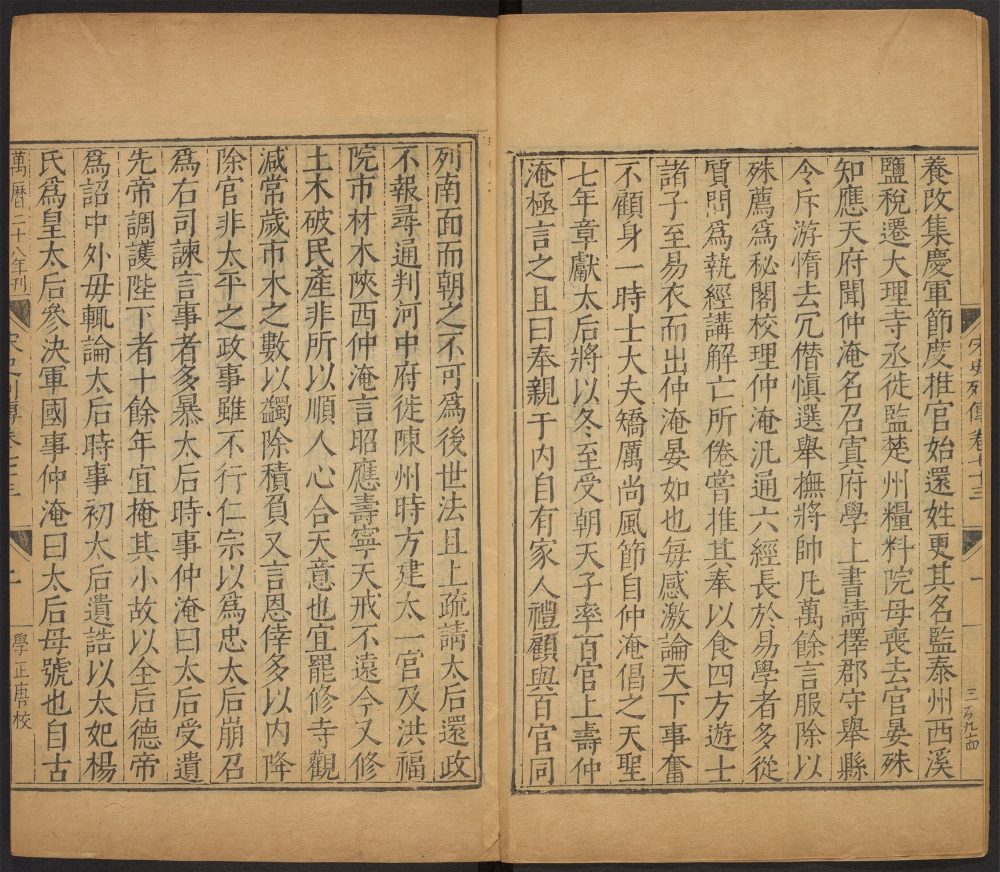 養改集慶軍節度推官始還姓更其名監泰州西溪
鹽稅遷大理寺丞徙監楚州糧料院母喪去官晏殊
知應天府聞仲淹名召寘府學上書請擇郡守舉縣
令斥游惰去冗僭慎選舉撫將帥凡萬餘言服除以
殊薦爲秘閣校理仲淹汎通六經長於易學者多從
質問爲執經講解亡所倦嘗推其奉以食四方遊士
諸子至易衣而出仲淹晏如也每感激論天下事奮
不顧身一時士大夫矯厲尚風節自仲淹倡之天聖
七年章獻太后將以冬至受朝天子率百官上壽仲
淹極言之且曰奉親于内自有家人禮顧與百官同
宋史列傳卷七十三
一
三百九十四
列南面而朝之不可爲後世法且上疏請太后還政
不報尋通判河中府徙陳州時方建太一宮及洪福
院市材木陝西仲淹言昭應壽寧天戒不遠今又修
土木破民產非所以順人心合天意也宜罷修寺觀
減常歲市木之數以蠲除積負又言恩倖多以内降
除官非太平之政事雖不行仁宗以爲忠太后崩召
爲右司諫言事者多暴太后時事仲淹曰太后受遺
先帝調護陛下者十餘年宜掩其小故以全后德帝
爲詔中外毋輒論太后時事初太后遺誥以太妃楊
氏爲皇太后參決軍國事仲淹曰太后母號也自古
萬曆二十八年刊
宋史列傳卷七十三
學正唐校